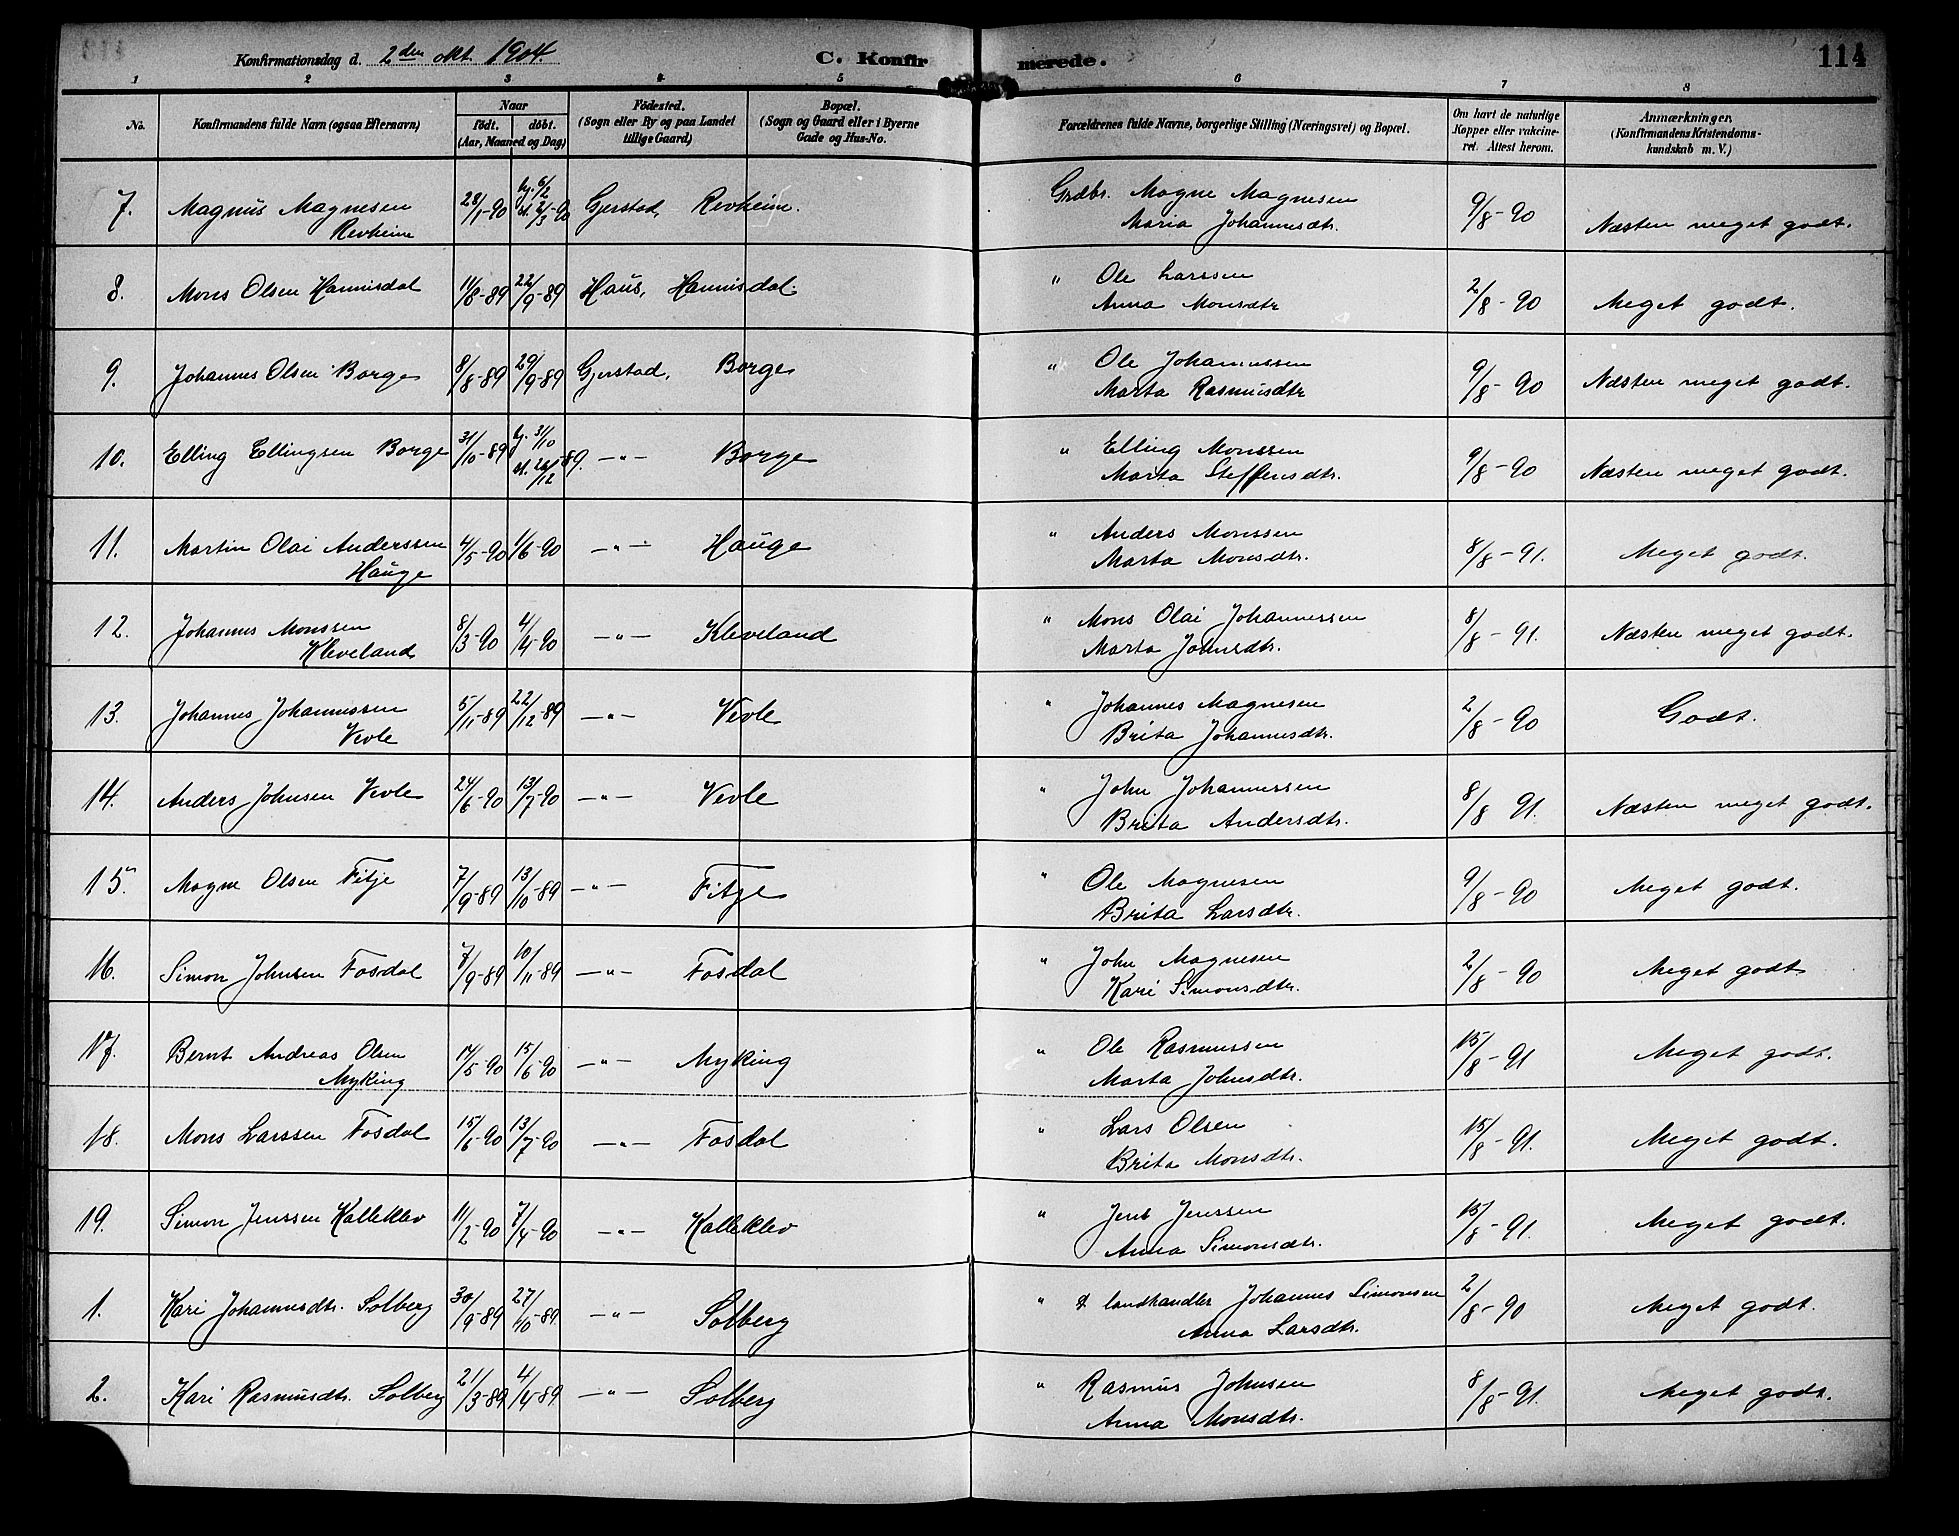 Konfirmationsdag d. 2den okt. 1904. C. Konfirmerede. 114
1 2 3 4 5 6 7 8
No. Konfirmandens fulde Navn (ogsaa Efternavn) Naar födt. döbt. (Aar, Maaned og Dag) Födested. (Sogn eller By og paa Landet tillige Gaard) Bopæl. (Sogn og Gaard eller i Byerne Gade og Hus-No. Forældrenes fulde Navne, borgerlige Stilling (Næringsvei) og Bopæl. Om havt de naturlige Kopper eller vakcineret. Attest herom. Anmærkninger. (Konfirmandens Kristendomskundskab m. V.)
7. Magnus Magnesen 28/1-90 hj. 6/2 st. 2/3-90 Gjerstad, Revheim. Grdbr. Magne Magnesen 9/8-90 Næsten meget godt.
Revheim Maria Johannesdtr.
8. Mons Olsen Hannisdal 11/8-89 22/9-89 Haus, Hannisdal. " Ole Larssen 2/8-90 Meget godt.
Anna Monsdtr
9. Johannes Olsen Borge 8/8-89 29/9-89 Gjerstad, Borge " Ole Johannessen 9/8-90 Næsten meget godt.
Marta Rasmusdtr
10. Elling Ellingsen Borge 31/10-89 hj. 31/10 st. 26/12-89. —"— Borge " Elling Monssen 9/8-90 Næsten meget godt.
Marta Steffensdtr.
11. Martin Olai Anderssen 4/5-90 1/6-90 —"— Hauge " Anders Monssen 8/8-91. Meget godt.
Hauge Marta Monsdtr.
12. Johannes Monssen 8/3-90 4/4-90 —"— Kleveland " Mons Olai Johannessen 8/8-91. Næsten meget godt.
Kleveland Marta Johnsdtr.
13. Johannes Johannessen 5/11-89 22/12-89 —"— Vevle " Johannes Magnesen 2/8-90 Godt.
Vevle Brita Johannesdtr.
14. Anders Johnsen Vevle 24/6-90 13/7-90 —"— Vevle " John Johannessen 8/8 91. Næsten meget godt.
Brita Andersdtr.
15. Magne Olsen Fitje 7/9-89 13/10-89 —"— Fitje " Ole Magnesen 9/8-90 Meget godt.
Brita Larsdtr.
16. Simon Johnsen Fosdal 7/9-89 10/11-89 —"— Fosdal " John Magnesen 2/8-90 Meget godt
Kari Simonsdtr.
17. Bernt Andreas Olsen 14/5-90 15/6-90 —"— Myking " Ole Rasmussen 15/8-91 Meget godt.
Myking Marta Johnsdtr.
18. Mons Larssen Fosdal 15/6-90 13/7-90 —"— Fosdal " Lars Olsen 15/8-91. Meget godt.
Brita Monsdtr.
19. Simon Jenssen Kalleklev 11/2-90 7/4-90 —"— Kalleklev " Jens Jenssen 15/8-91. Meget godt.
Anna Simonsdtr.
1. Kari Johannesdtr. Solberg 30/9-89 27/10-89. —"— Solberg " & landhandler Johannes Simonsen 2/8-90 Meget godt.
Anna Larsdtr.
2. Kari Rasmusdtr. Solberg 21/3-89 4/4-89 —"— Solberg " Rasmus Johnsen 8/8-91. Meget godt.
Anna Monsdtr.